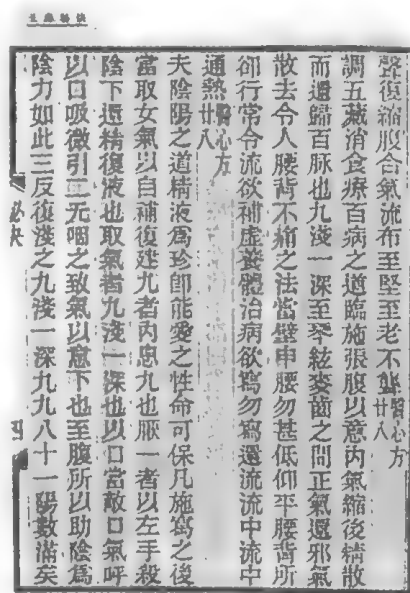 聲復縮股合氣流布至堅至老不聾醫心方廿八
調五藏消食療百病之道臨施張腹以意內氣縮後精散
而還歸百脉也九淺一深至琴絃麥齒之間正氣還邪氣
散去令人腰背不痛之法當壁申腰勿甚低仰平腰背所
卻行常令流欲補虛養體治病欲寫勿寫還流流中流中
通熱醫心方廿八
夫陰陽之道精液爲珍卽能愛之性命可保凡施寫之後
當取女氣以自補復建九者內息九也厭一者以左手殺
陰下還精復液也取氣者九淺一深也以口當敵口氣呼
以口吸微引二无咽之致氣以意下也至腹所以助陰爲
陰力如此三反復淺之九淺一深九九八十一陽數滿矣
四